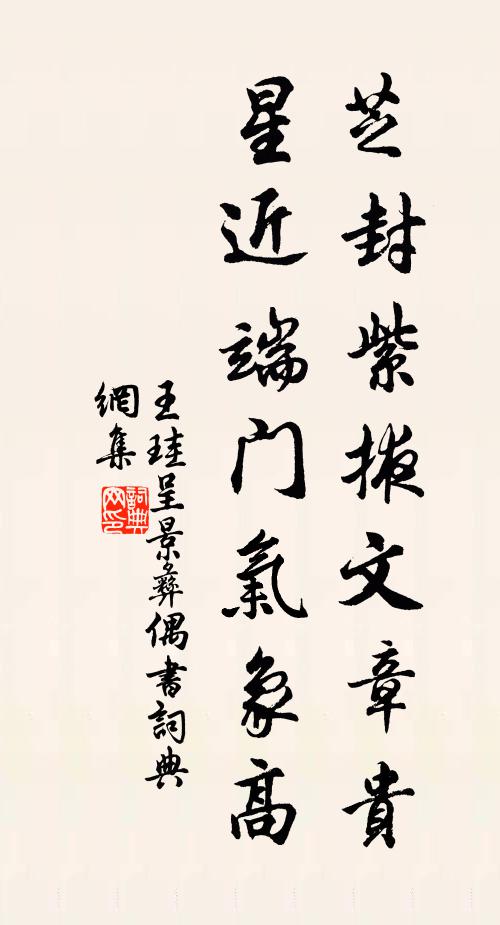 芝封紫掖文章貴
星近端门氣象高
王珪呈景彝偶書詞典
網集
詞典
网印